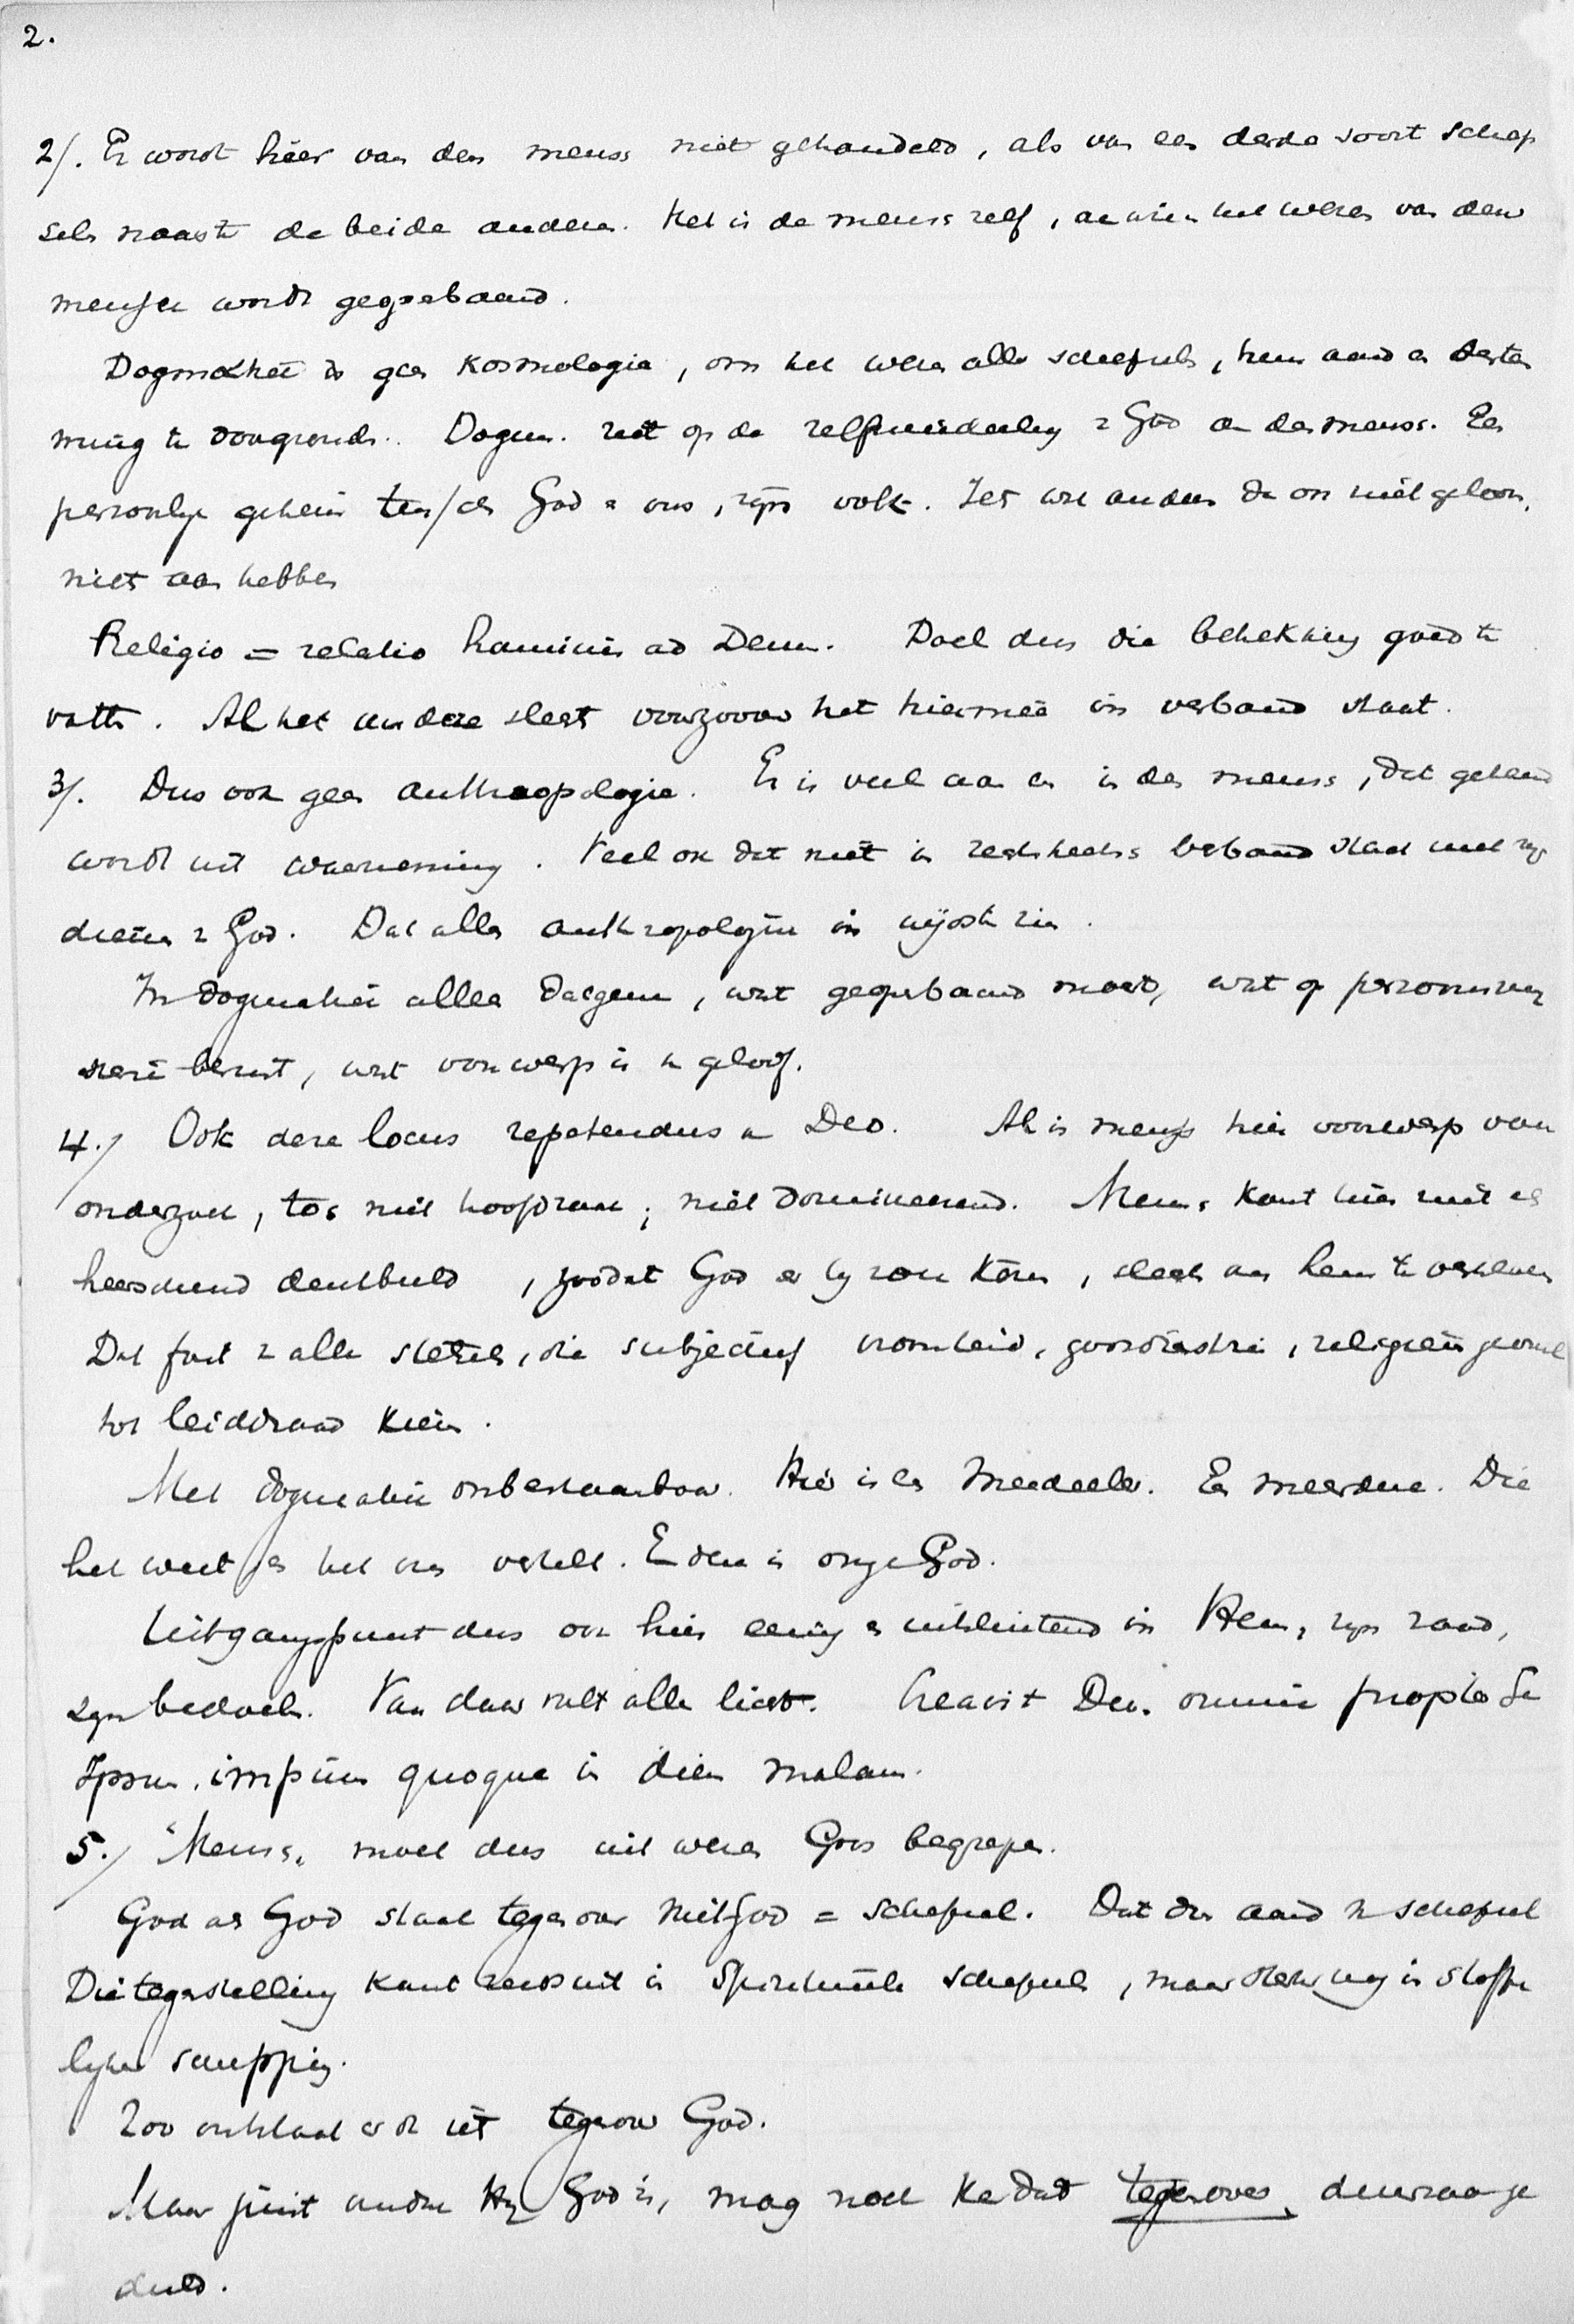 2.
2/. Er wordt hier van den mensch niet gehandeld, als van een derde soort schep
sels naast de beide andere. Het is de mensch zelf, aan wien het wezen van den
mensch wordt geopenbaard.
Dogmatiek is geen Kosmologie, om het wezen aller schepsels, hun aard en bestem
ming te doorgronden. Dogm. rust op de zelfmededeeling v God aan den mensch. Een
persoonlijk geheim tusschen God en ons, zijn volk. Iets wat anderen die ons niet gelooven,
niets aan hebben
Religio = relatio hominis ad Deum. Doel dus die betrekking goed te
vatten. Al het andere slechts voorzoover het hiermee in verband staat.
3/. Dus ook geen Anthropologie. Er is veel aan en in den mensch, dat gekend
wordt uit waarneming. Veel ook dat niet in rechtstreeks verband staat met zijn
dienen v God. Dat alles anthropologie in wijdsten zin.
In dogmatiek alleen datgene, wat geopenbaard moest, wat op
berust, wat voorwerp is v geloof.
4./ Ook deze locus repetendus a Deo. Al is mensch hier voorwerp van
onderzoek, toch niet hoofdzaak; niet domineerend. Mensch komt hier niet als
heerschend denkbeeld, zoodat God er bij zou komen, slechts om hem te verklaren
Dat fout v alle stelsels, die subjectief vroomheid, godsdienstzin, religieus gevoel
tot leiddraad kiezen.
Met dogmatiek onbestaanbaar. Hier is een Mededeeler. Een meerdere. Die
het weet en het ons vertelt. En deze is onze God.
Uitgangspunt dus ook hier eenig en uitsluitend in Hem, zijn raad,
zijn bedoelen. Van daar valt alle licht. Creavit Deus omnia propter Se
Ipsum, impium quoque in diem malam.
5./ "Mensch" moet dus uit wezen Gods begrepen.
God als God staat tegenover Niet God = schepsel. Dat de aard v schepsel
Die tegenstelling komt reeds uit in Spiritueele schepsels, maar sterker nog in stoffe
lijke schepping.
Zoo ontstaat er dus iets tegenover God.
Maar juist omdat Hij God is, mag noch kan dat tegenover, duurzaam ge
duld.